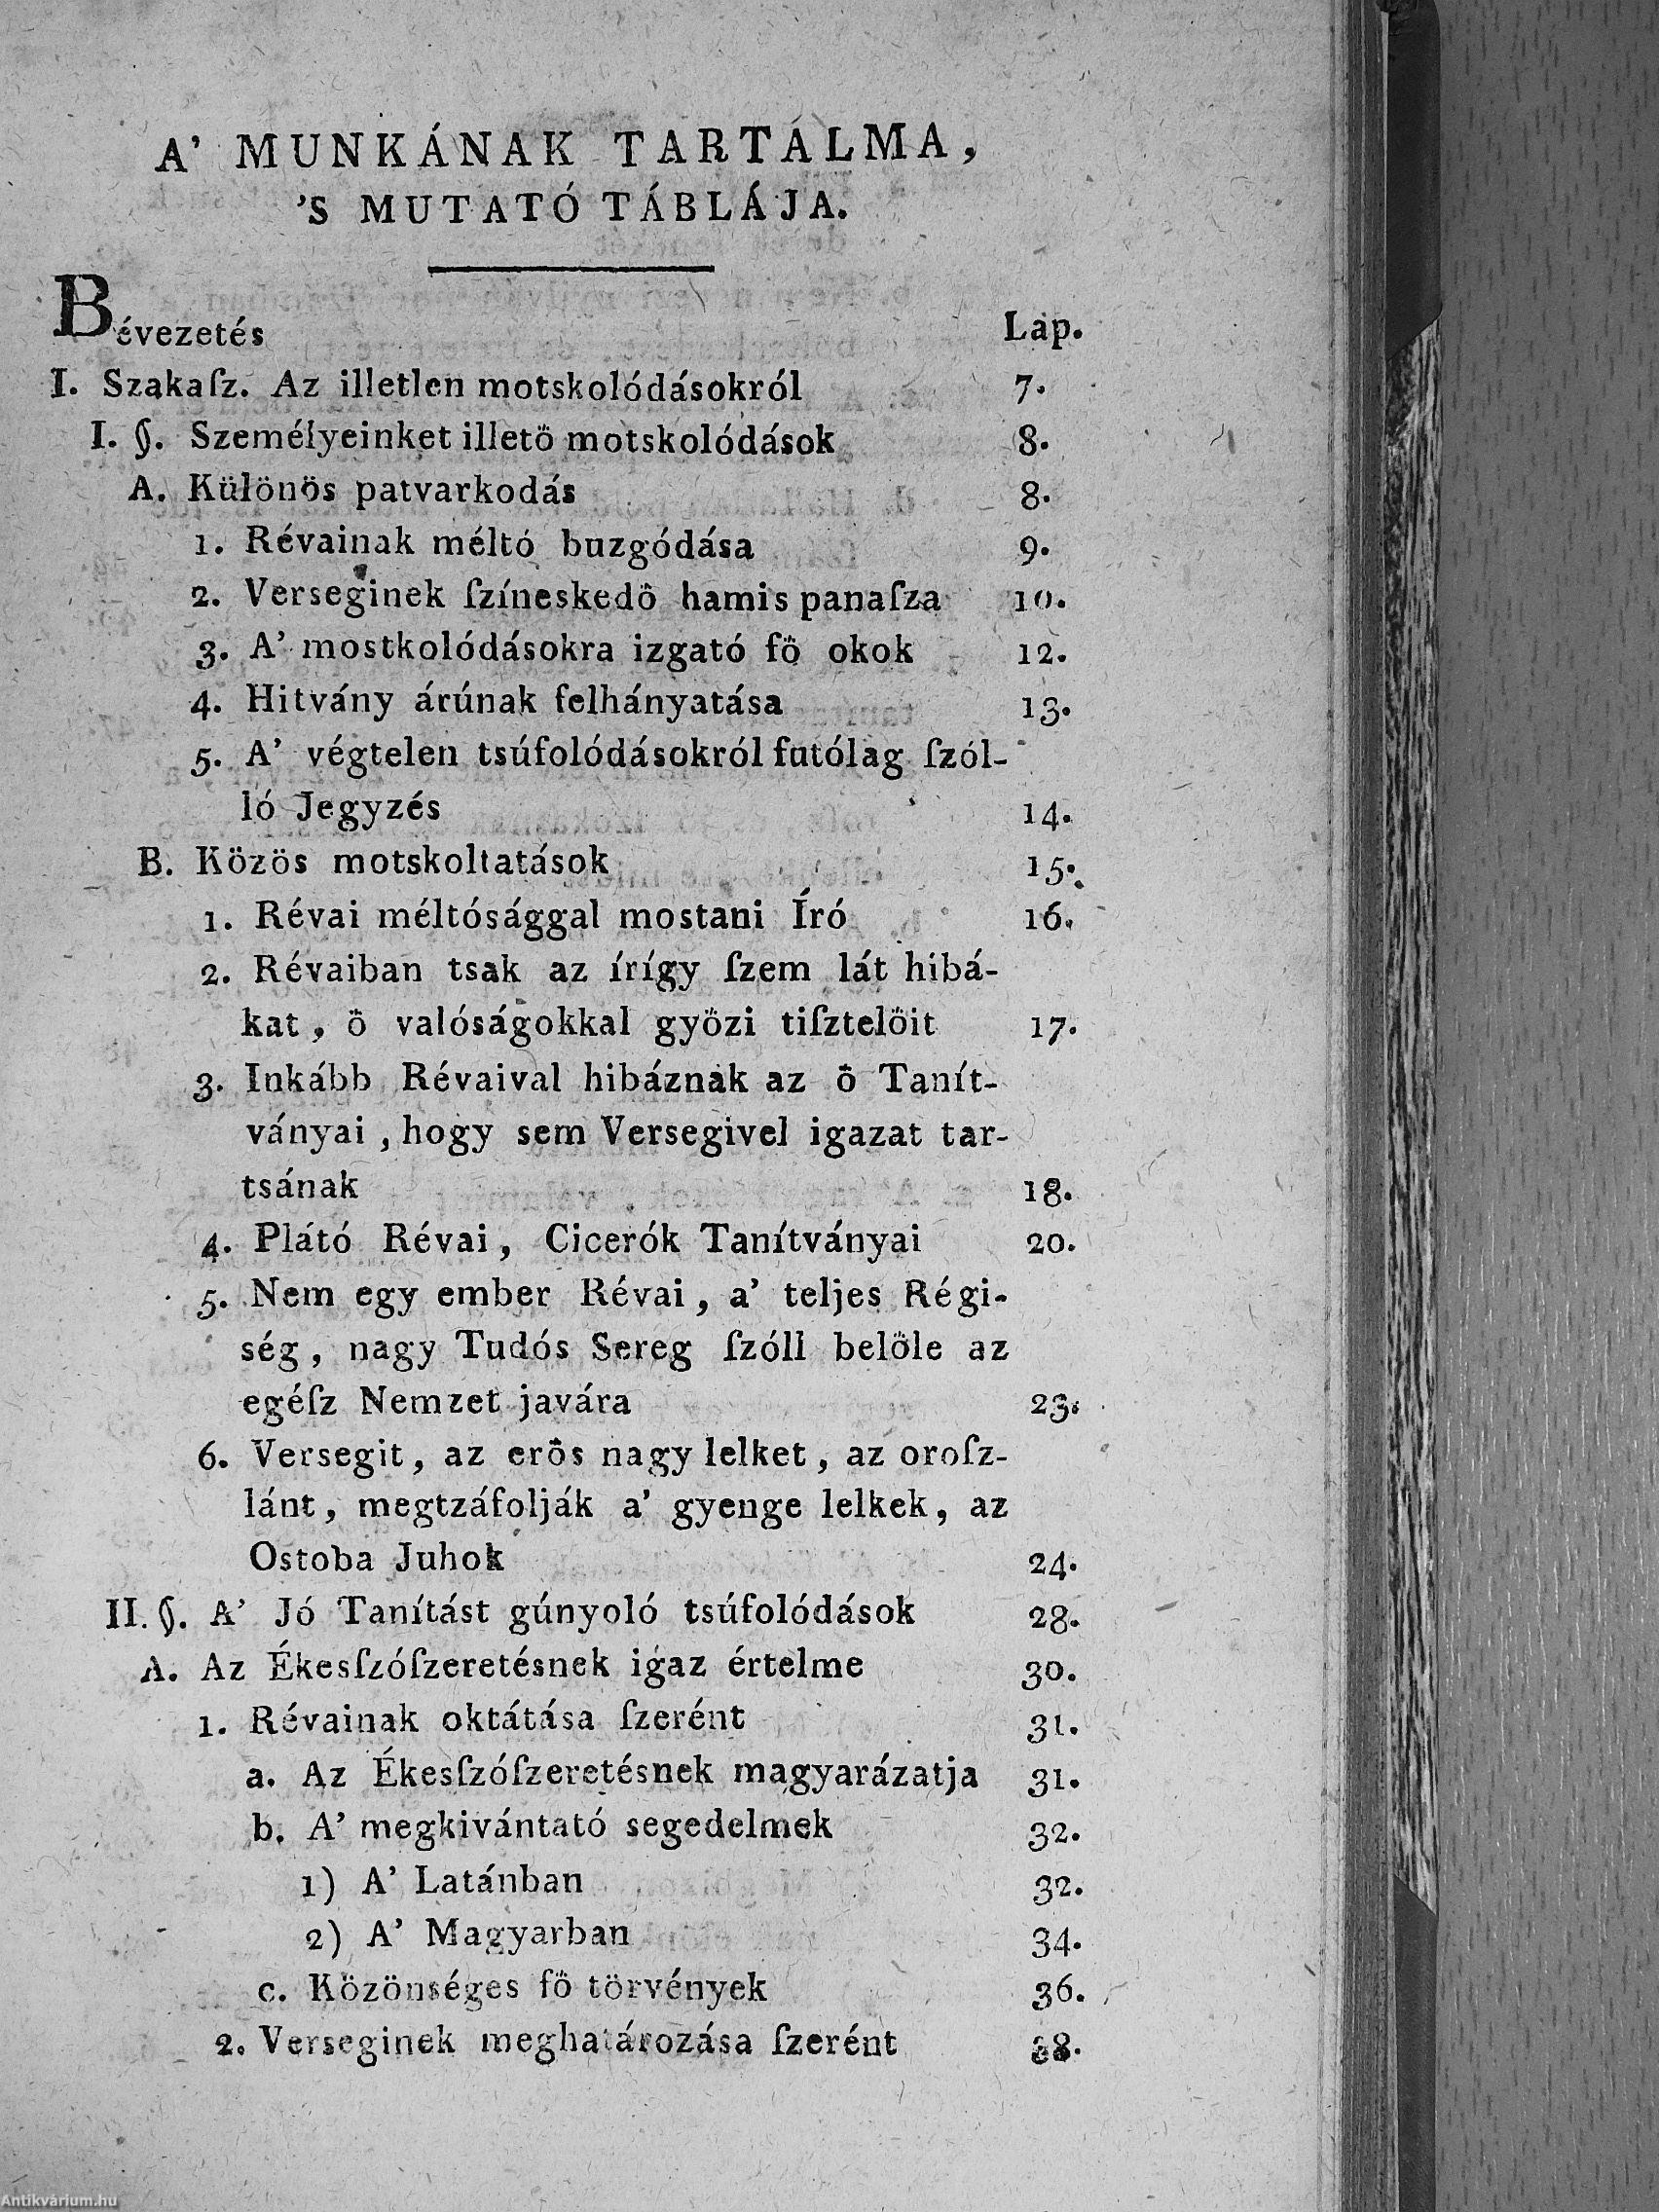 A’ MUNKÁNAK TARTALMA,
’S MUTATÓ TÁBLÁJA.
Bévezetés Lap.
I. Szakaſz. Az illetlen motskolódásokról 7.
I. §. Személyeinket illetö̂ motskolódások 8.
A. Különös patvarkodás 8.
1. Révainak méltó buzgódása 9.
2. Verseginek ſzíneskedö̂ hamis panaſza 10.
3. A’ mostkolódásokra izgató fö̂ okok 12.
4. Hitvány árúnak felhányatása 13.
5. A’ végtelen tsúfolódásokról futólag ſzól-
ló Jegyzés 14.
B. Közös motskoltatások 15.
1. Révai méltósággal mostani Író 16.
2. Révaiban tsak az írígy ſzem lát hibá-
kat, ö̂ valóságokkal gyö̂zi tiſztelö̂it 17.
3. Inkább Révaival hibáznak az ö̂ Tanít-
ványai, hogy sem Versegivel igazat tar-
tsának 18.
4. Plátó Révai, Cicerók Tanítványai 20.
5. Nem egy ember Révai, a’ teljes Régi-
ség, nagy Tudós Sereg ſzóll belö̂le az
egéſz Nemzet javára 23.
6. Versegit, az erö̂s nagy lelket, az oroſz-
lánt, megtzáfolják a’ gyenge lelkek, az
Ostoba Juhok 24.
II. §. A’ Jó Tanítást gúnyoló tsúfolódások 28.
A. Az Ékesſzóſzeretésnek igaz értelme 30.
1. Révainak oktátása ſzerént 31.
a. Az Ékesſzóſzeretésnek magyarázatja 31.
b. A’ megkivántató segedelmek 32.
1) A’ Latánban 32.
2) A’ Magyarban 34.
c. Közönséges fö̂ törvények 36.
2. Verseginek meghatározása ſzerént 38.
Antikvárium.hu